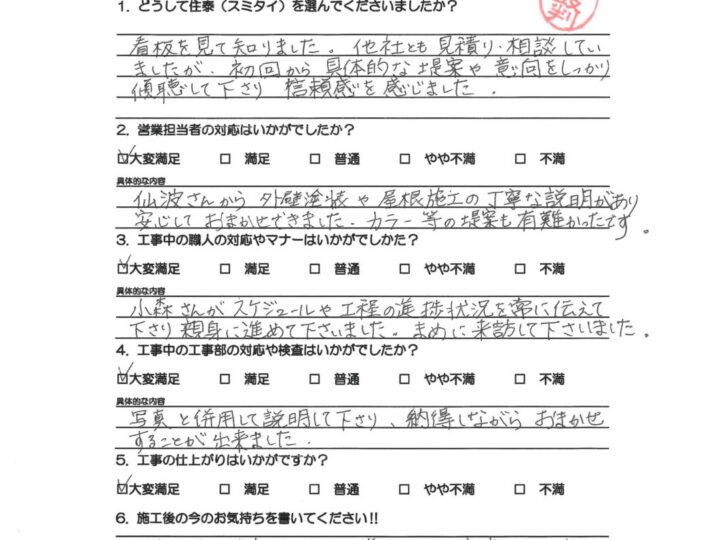 1. どうして住泰（スミタイ）を選んでくださいましたか？
看板を見て知りました。他社とも見積り・相談してい
ましたが、初回から具体的な提案や意向をしっかり
傾聴して下さり 信頼感を感じました。
2. 営業担当者の対応はいかがでしたか？
☑大変満足 □ 満足 □ 普通 □ やや不満 □ 不満
具体的な内容
仙波さんから外壁塗装や屋根施工の丁寧な説明があり
安心しておまかせできました。カラー等の提案も有難かったです。
3. 工事中の職人の対応やマナーはいかがでしかた？
☑大変満足 □ 満足 □ 普通 □ やや不満 □ 不満
具体的な内容
小森さんがスケジュールや工程の進捗状況を常に伝えて
下さり親身に進めて下さいました。まめに来訪して下さいました。
4. 工事中の工事部の対応や検査はいかがでしたか？
☑大変満足 □ 満足 □ 普通 □ やや不満 □ 不満
具体的な内容
写真と併用して説明して下さり、納得しながらおまかせ
することが出来ました。
5. 工事の仕上がりはいかがですか？
☑大変満足 □ 満足 □ 普通 □ やや不満 □ 不満
6. 施工後の今のお気持ちを書いてください!!